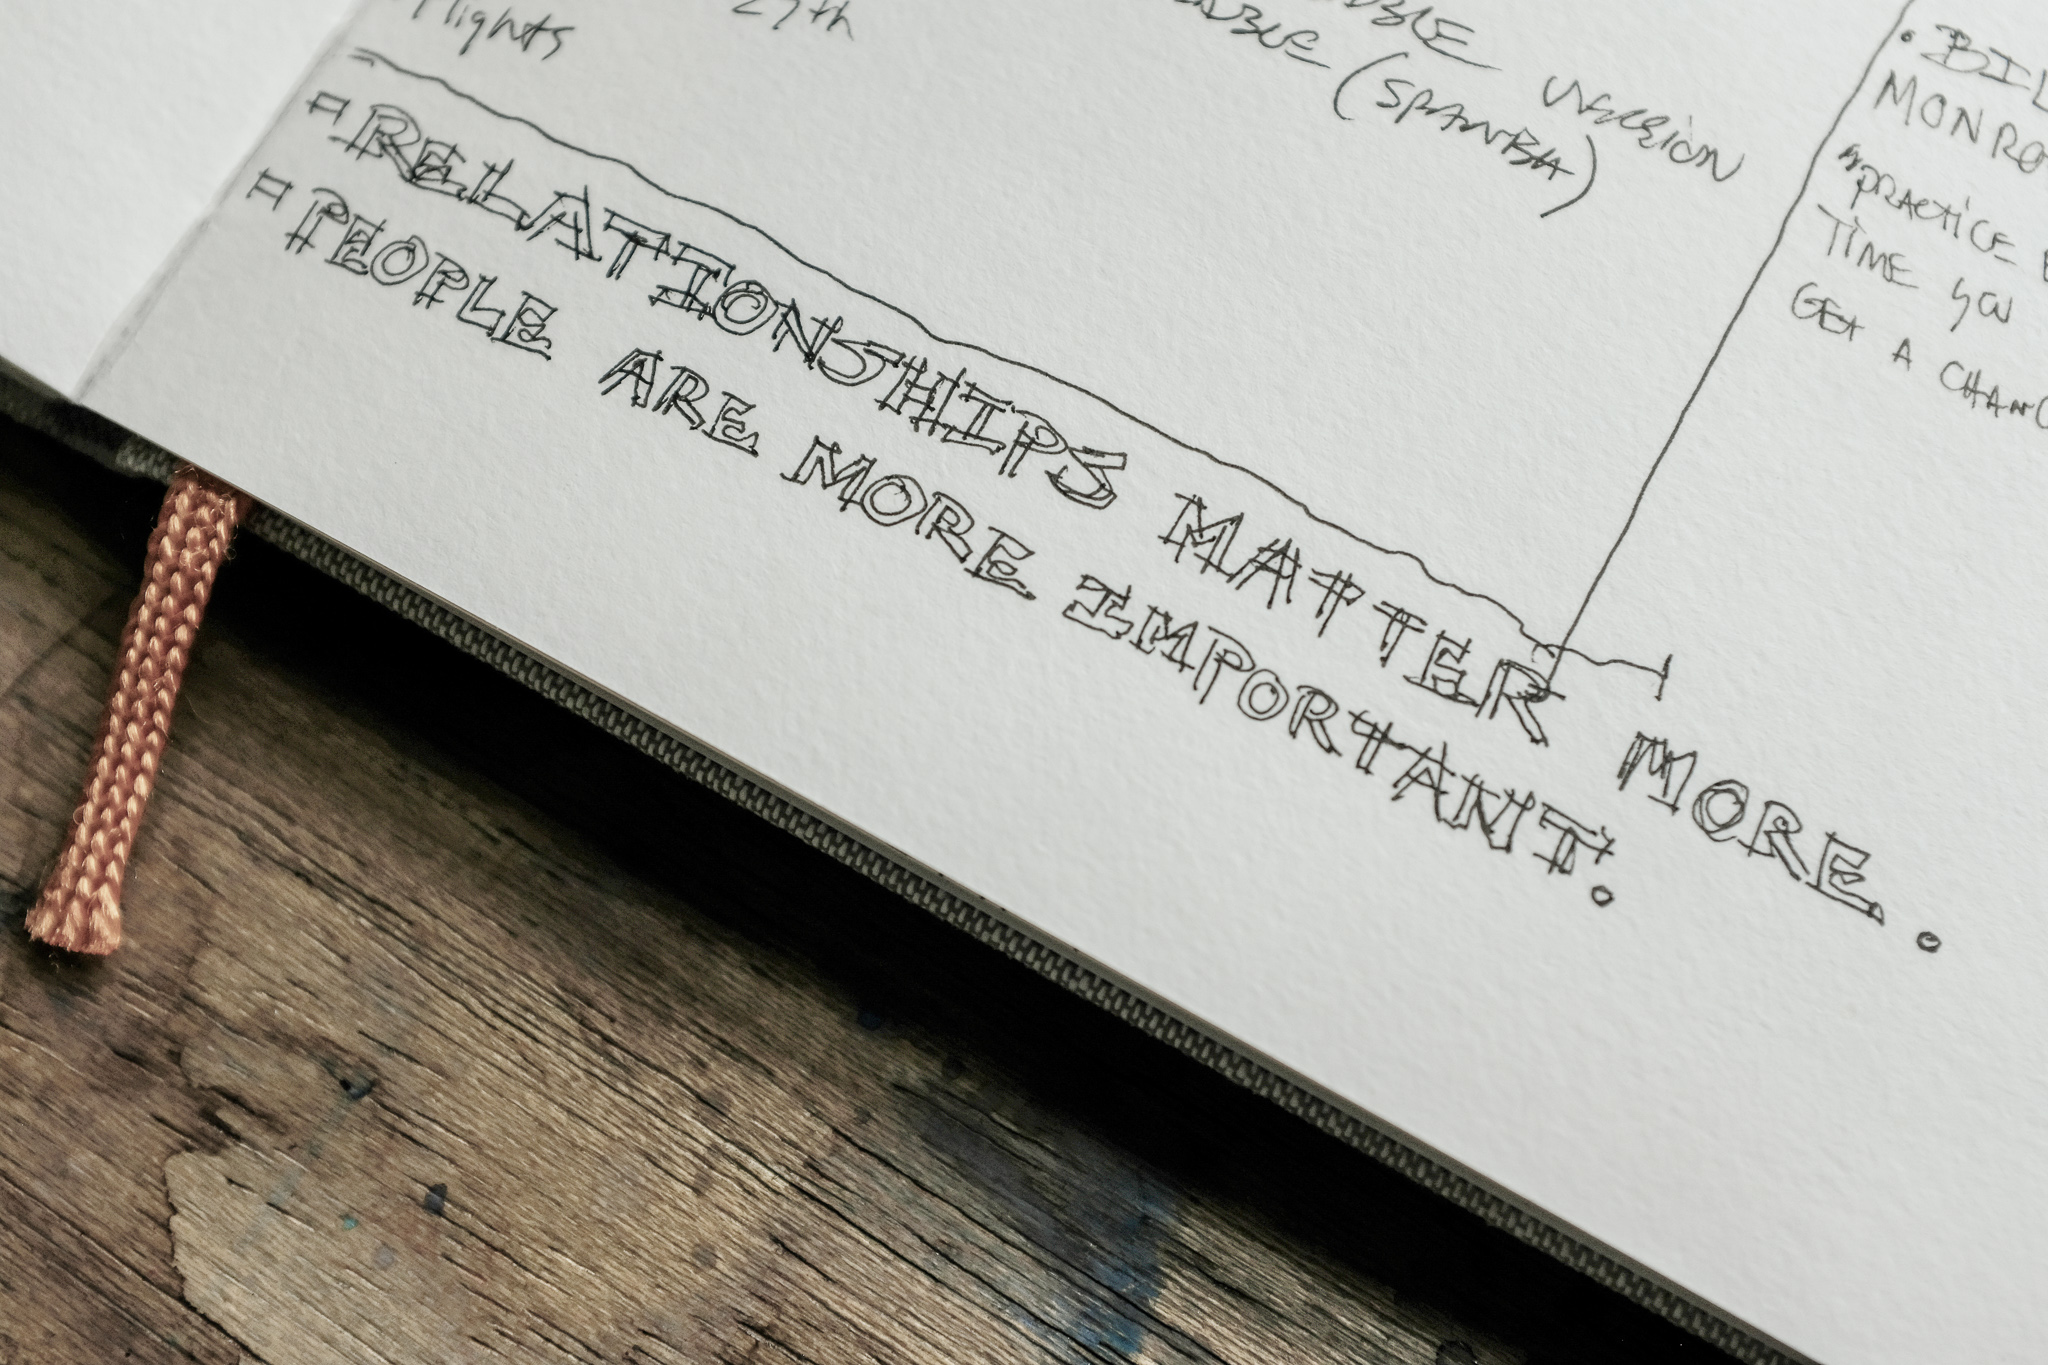 27th
VERSION
• BIL
MONRO
"PRACTICE E
TIME YOU
GET A CHANC
- RELATIONSHIPS MATTER MORE.
- PEOPLE ARE MORE IMPORTANT.